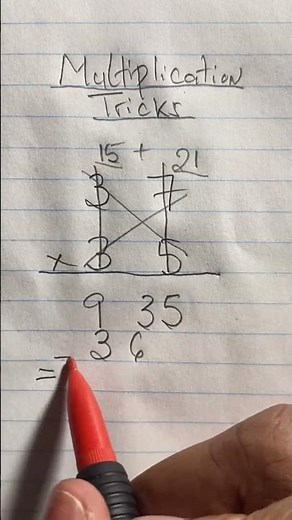 Multiplication
Tricks
15 + 21
3 7
× 3 5
9 35
3 6
=